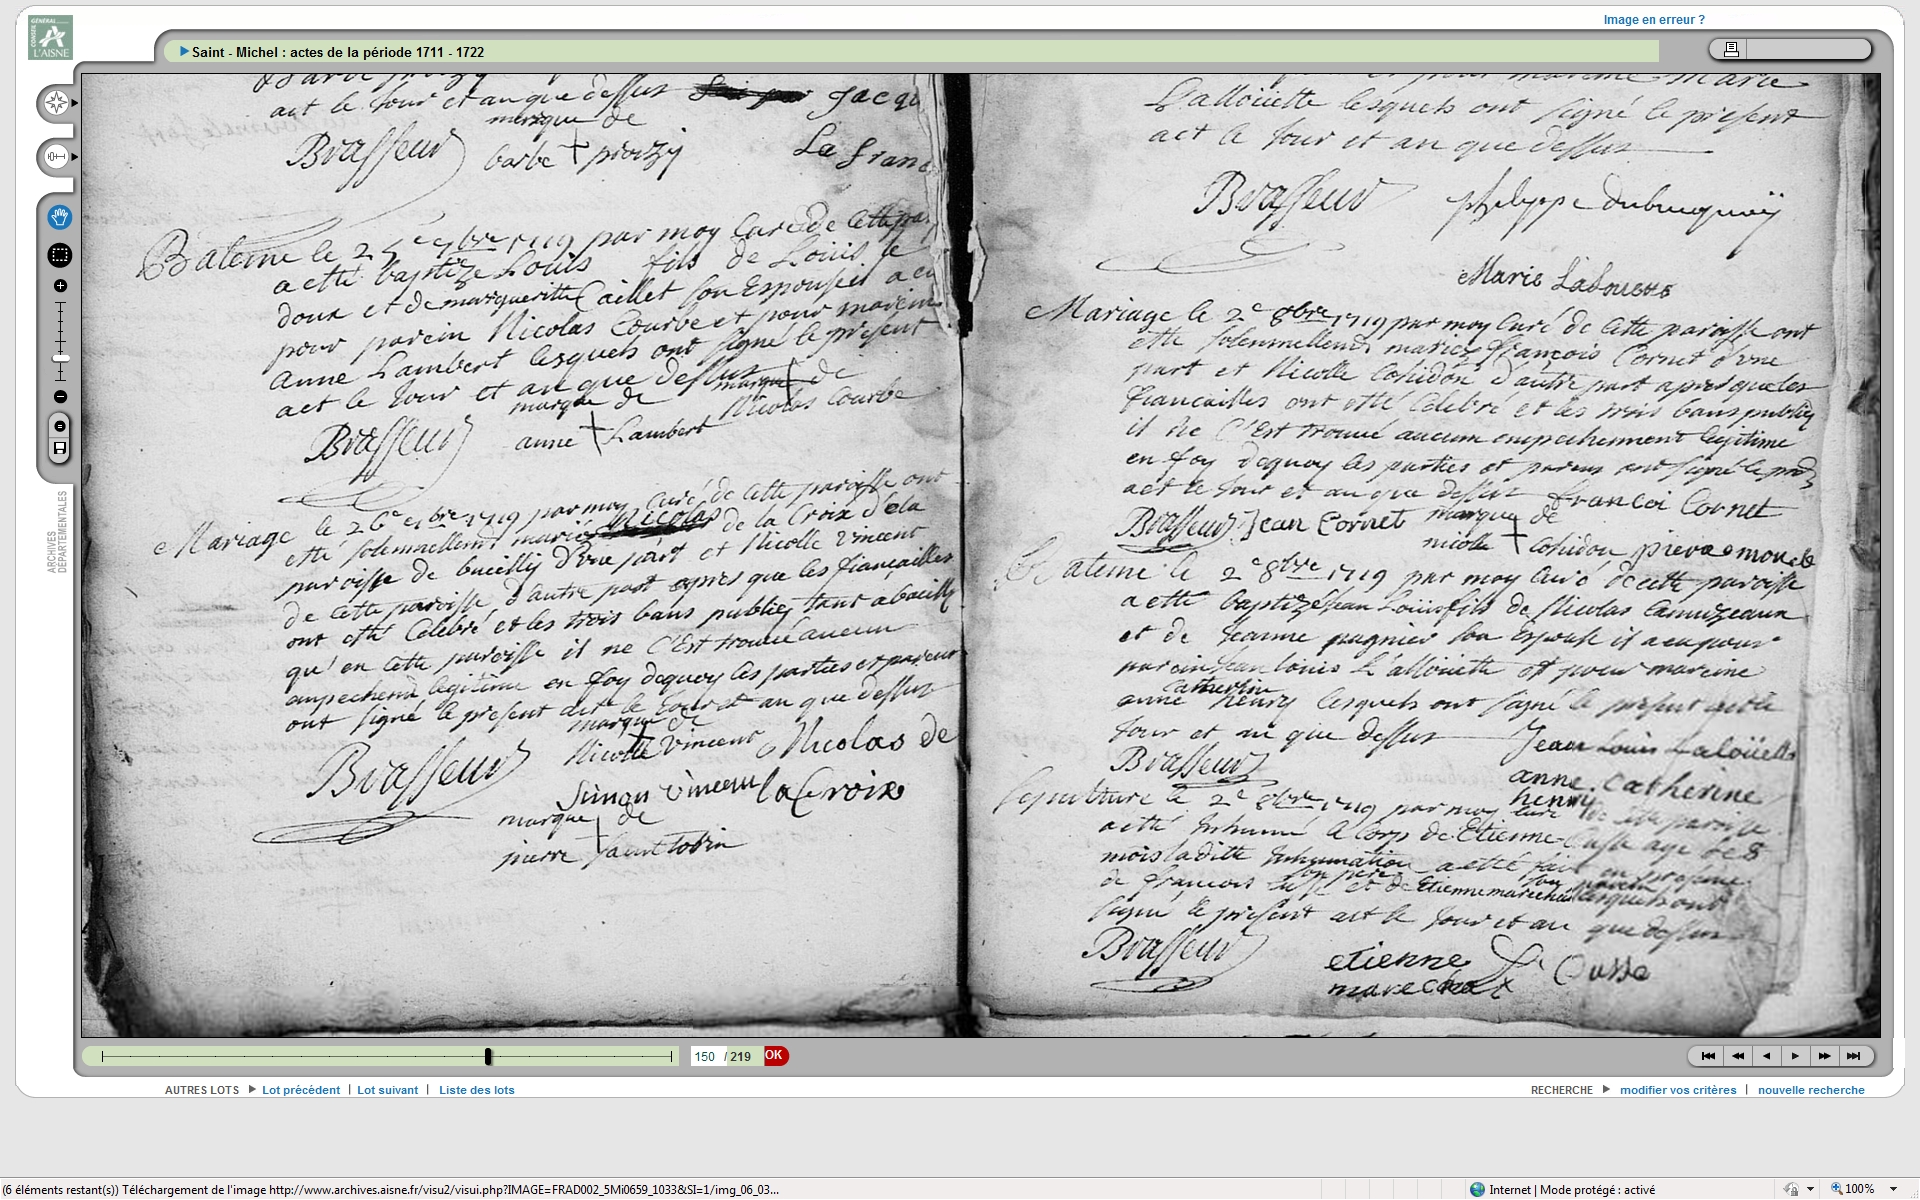 Image en erreur ?
CONSEIL GÉNÉRAL
L'AISNE
Saint - Michel : actes de la période 1711 - 1722
act le Jour et an que dessus Jacqu
marque de
Brasseur barbe + proizy La franc
Bateme le 25e 7bre 1719 par moy Curé de Cette par
a etté baptizé Louis fils de Louis le
doux et de margueritte Caillet son Espouse il a eu
pour parein Nicolas Courbe et pour mareine
Anne Lambert lesquels ont signé le present
act le Jour et an que dessus
marque de
marque de
Nicolas Courbe
Brasseur anne + Lambert
Mariage le 26e 7bre 1719 par moy Curé de Cette paroisse ont
etté solemnellemt mariés Nicolas de la Croix de la
paroisse de bucilly d'Une part et Nicolle Vincent
de Cette paroisse d'autre part apres que les fiançailles
ont etté Celebré et les trois bans publiez tant a bucilly
qu'en Cette paroisse il ne C'Est trouvé aucun
empechemt legitime en foy dequoy les parties et pareus
ont signé le present act le Jour et an que dessus
marque de
Brasseur Nicolle Vincent Nicolas de
la Croix
Simon Vincent
marque de
pierre saint tobin
et pour mareine Marie
Lalloüette lesquels ont signé le present
act le Jour et an que dessus
Brasseur philippe dubuquoÿ
Marie Lalouette
Mariage le 2e 8bre 1719 par moy Curé de Cette paroisse ont
etté solemnellemt mariez françois Cornet d'Une
part et Nicolle Cohidon d'autre part apres que les
fiancailles ont etté Celebré et les trois bans publiez
il ne C'Est trouvé aucum empechemment legitime
en foy dequoy les parties et pareus ont signé le pnt
act le Jour et an que dessus francoi Cornet
Brasseur Jean Cornet marque de
nicolle + Cohidon
Bateme le 2e 8bre 1719 par moy Curé de Cette paroisse
a etté baptizé Jean Louis fils de Nicolas Camuzeaux
et de Jeanne pagnier son Espouse il a eu pour
parein Jean Louis L'alloüette et pour mareine
Catherine
anne henry lesquels ont signé le present act le
Jour et an que dessus Jean Louis Laloüette
Brasseur anne Catherine
henry
Sepulture le 2e 8bre 1719 par moy Curé de Cette paroisse
a etté Inhumé le Corp de Etienne Cusse agé de 8
mois laditte Inhumation a etté fait en presence
son pere
de francois Cusse et de Etienne marechal lesquels ont
signé le present act le Jour et an que dessus
Brasseur etienne f Cusse
marechal
ARCHIVES
DÉPARTEMENTALES
150 / 219 OK
AUTRES LOTS Lot précédent | Lot suivant | Liste des lots
RECHERCHE modifier vos critères | nouvelle recherche
(6 éléments restant(s)) Téléchargement de l'image http://www.archives.aisne.fr/visu2/visui.php?IMAGE=FRAD002_5Mi0659_1033&SI=1/img_06_03...
Internet | Mode protégé : activé
100%